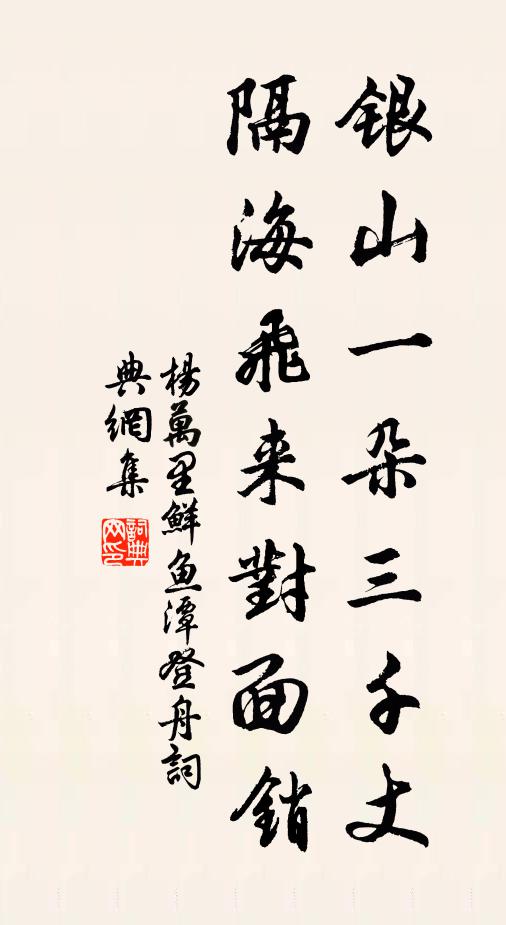 銀山一朵三千丈
隔海飛来對面銷
楊萬里鮮魚潭登舟詞
典網集
詞典网印